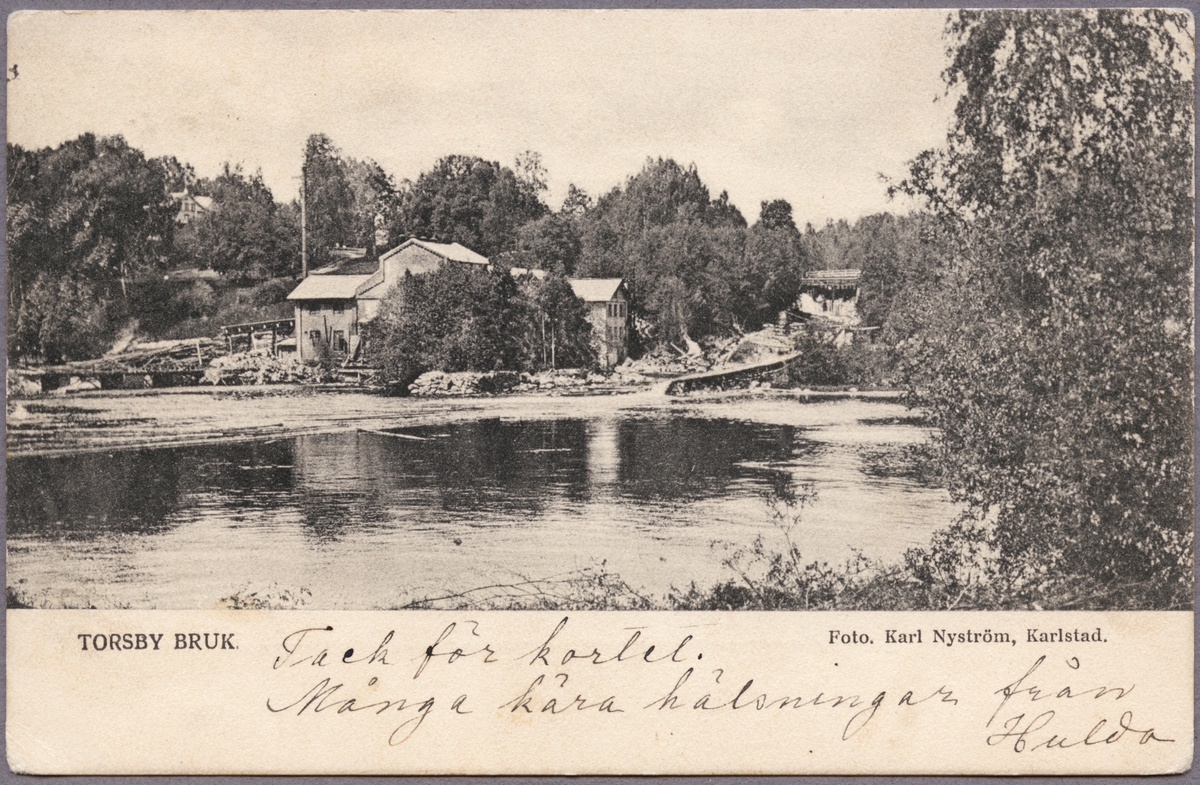 TORSBY BRUK.
Foto. Karl Nyström, Karlstad.
Tack för kortet.
Många kära hälsningar från
Hulda